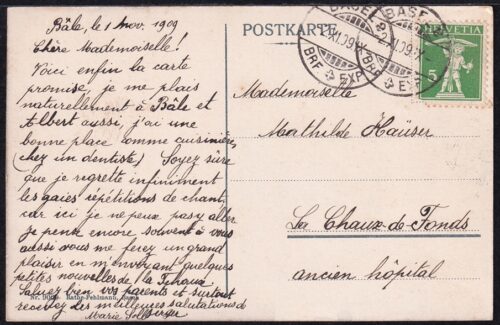 Bâle, le 1 nov. 1909
Chère Mademoiselle!
Voici enfin la carte
promise, je me plais
naturellement à Bâle et
Albert aussi, j'ai une
bonne place comme cuisinière,
(chez un dentiste) Soyez sûre
que je regrette infiniment
les gaies répétitions de chant,
car ici je ne peux pas y aller.
Je pense encore souvent à vous
aussi vous me ferez un grand
plaisir en m'envoyant quelques
petites nouvelles de la Tchaux.
Saluez bien vos parents et surtout
recevez des meilleures salutations d
Marie
Nr. Rathe-Fehlmann, Basel
POSTKARTE
BASEL
XI.09
BRF. EXP.
BASEL
XI.09
BRF. EXP.
HELVETIA
5
Mademoiselle
Mathilde Haüser
La Chaux-de-Fonds
ancien hôpital